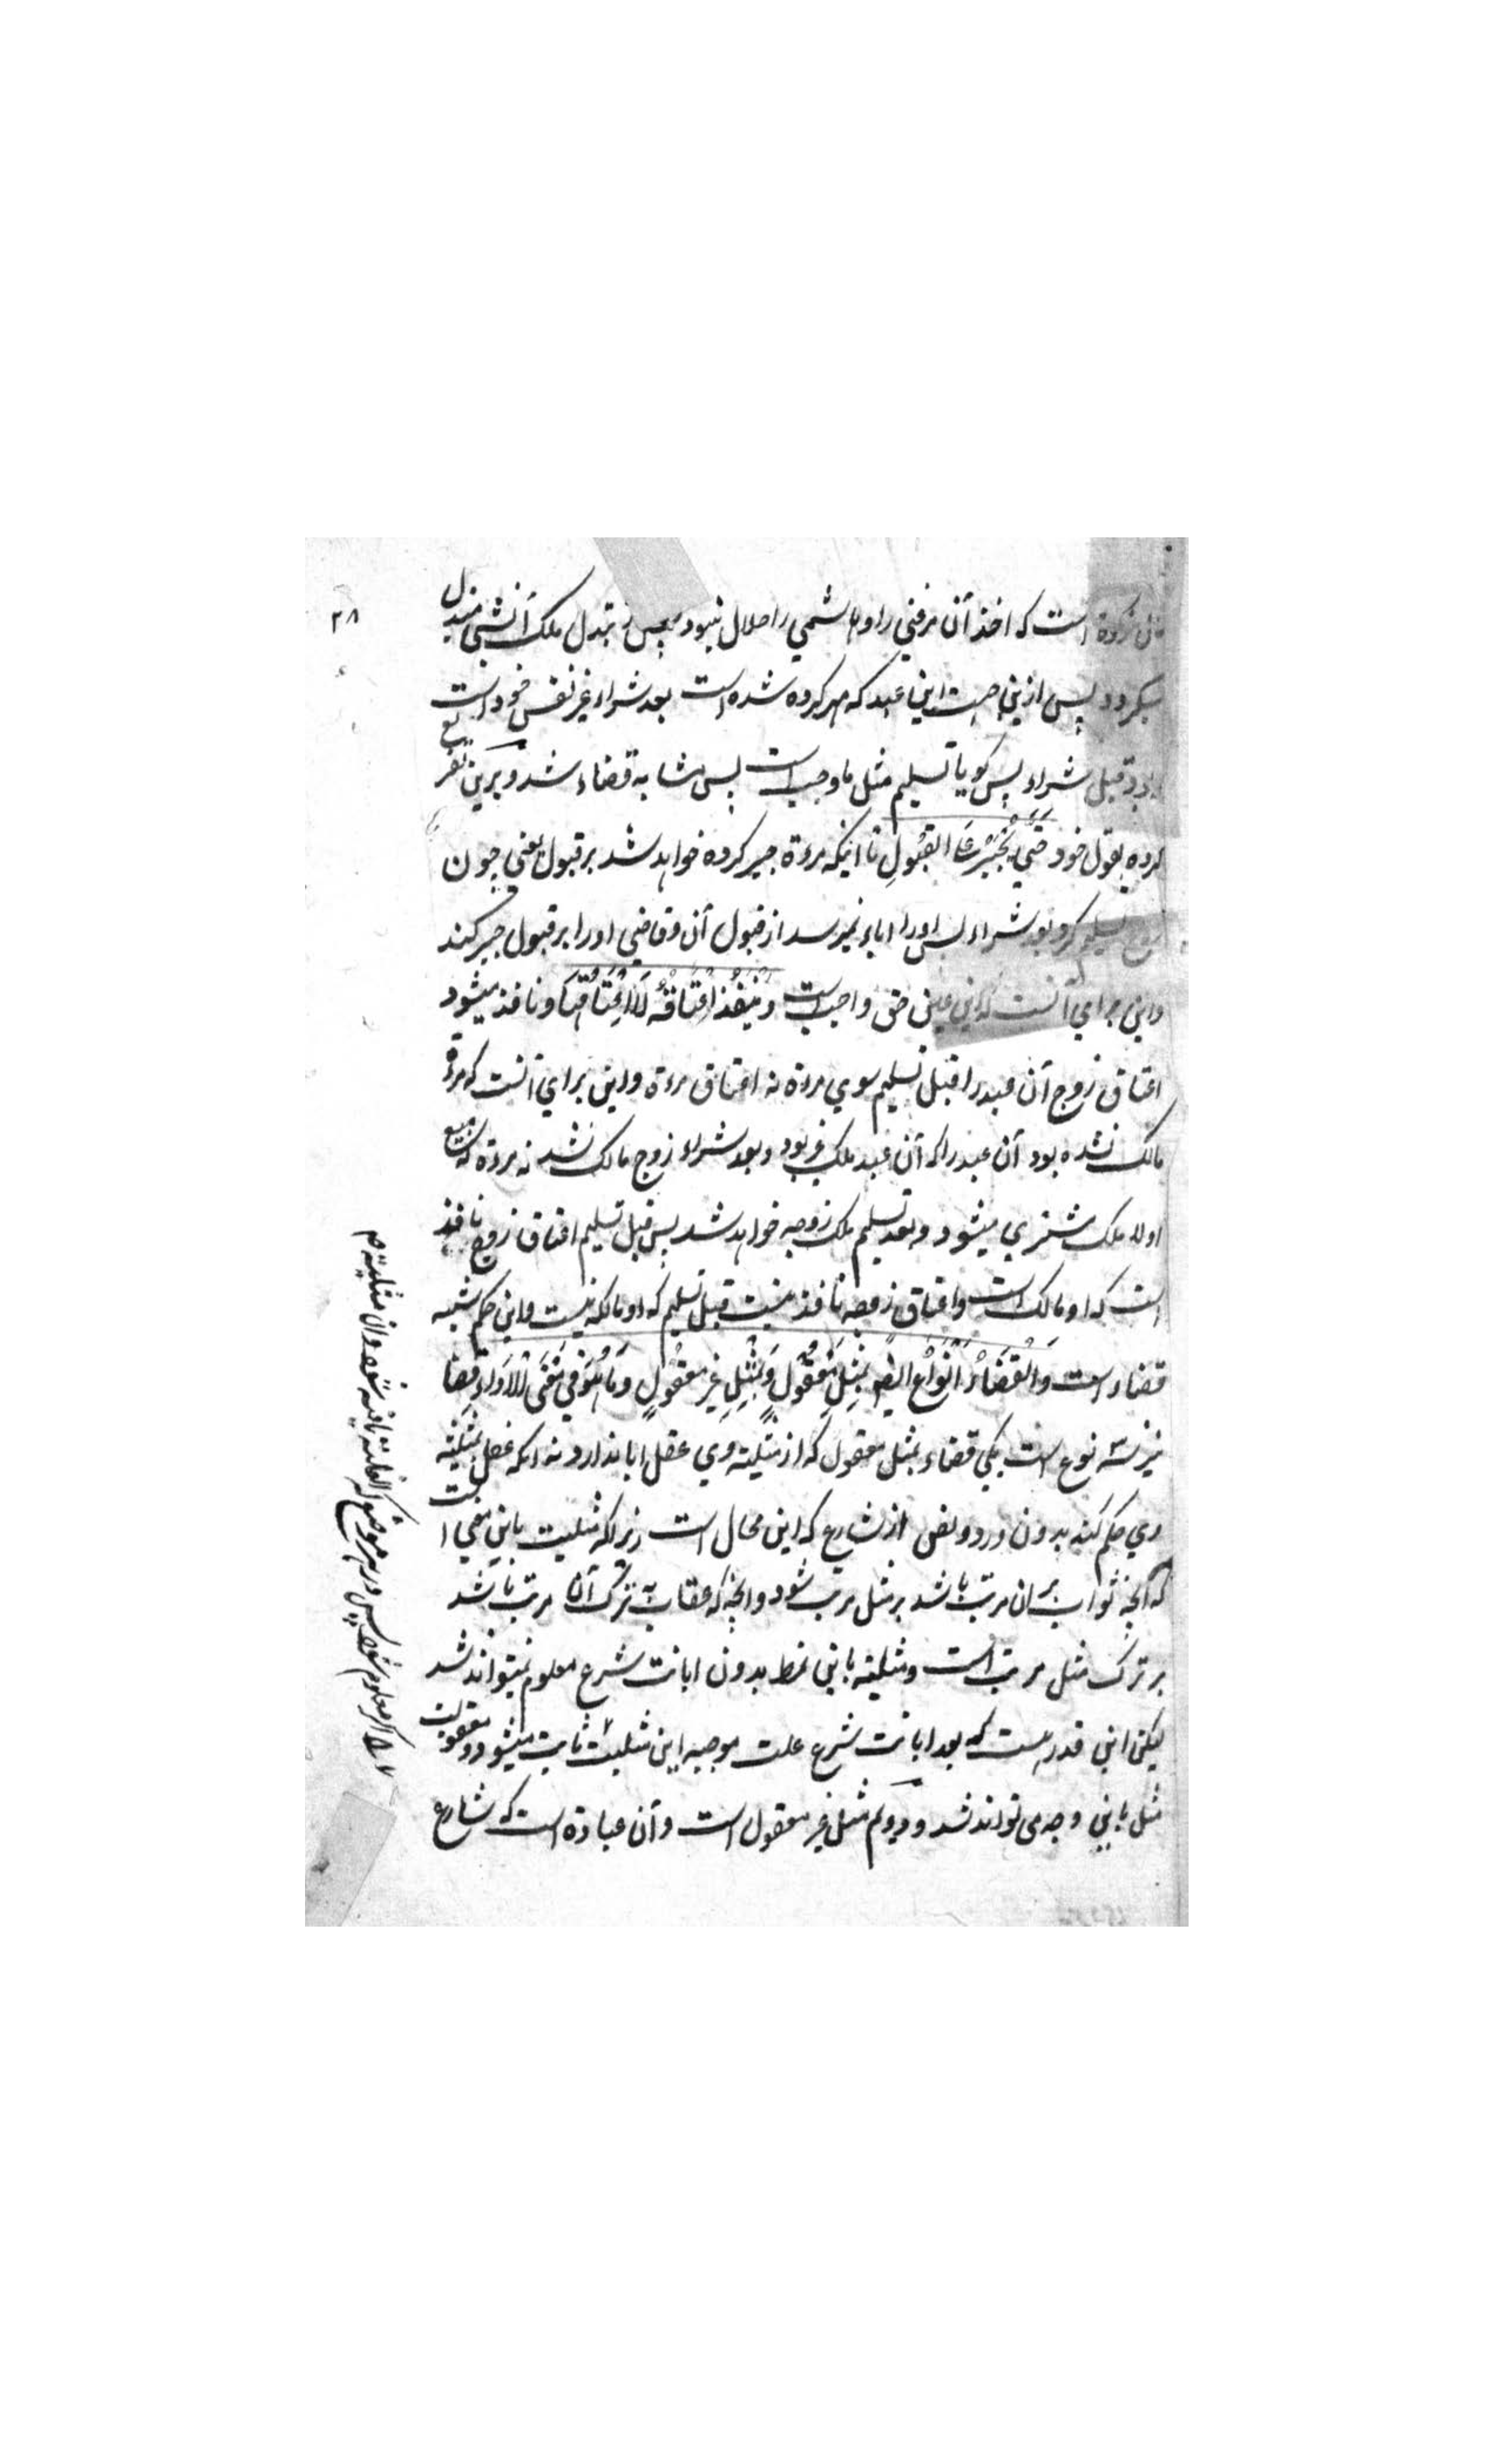 ۳۸
است که اخذ آن مر غنی را و هاشمی را حلال نبود پس از تبدل ملک آن شی متبدل
میگردد پس ازین جهت این عبد که مهر کرده شده است بعد شراء غیر نفس خود است
قبل شراء پس گویا تسلیم مثل ما وجب است پس مشابه قضاء شد و برین تفریع
کرده بقول خود حَتّٰی تُجْبَرُ عَلَی القَبُولِ تا اینکه مرءة جبر کرده خواهد شد بر قبول یعنی چون
تسلیم کرد بعد شراء پس او را اباء نمیرسد از قبول آن و قاضی او را بر قبول جبر کند
و این برای آنست که این عین حق واجب است وَیَنْفُذُ اِعْتَاقُهُ لَا اِعْتَاقُهَا و نافذ میشود
اعتاق زوج آن عبد را قبل تسلیم سوی مرءة نه اعتاق مرءة و این برای آنست که مرءة
مالک نشده بود آن عبد را که آن عبد ملک غیر بود و بعد شراء زوج مالک شد نه مرءة که مبیع
اولا ملک مشتری میشود و بعد تسلیم ملک زوجه خواهد شد پس قبل تسلیم اعتاق زوج نافذ
است که او مالک است و اعتاق زوجه نافذ نیست قبل تسلیم که او مالکه نیست و این حکم شبیه
قضاء است وَالْقَضَاءُ اَنْوَاعٌ ایضًا بِمِثْلٍ مَعْقُولٍ وَبِمِثْلٍ غیرِ مَعْقُولٍ وَمَا هُوَ فِی مَعْنَی الْاَدَاءِ قضا
نیز سه نوع است یکی قضاء بمثل معقول که از مثلیته وی عقل ابا ندارد نه آنکه عقل بمثلیته
وی حکم کند بدون ورود نص از شارع که این محال است زیرا که مثلیت باین معنی است
که آنچه ثواب بر آن مرتب باشد بر مثل مرتب شود و آنچه که عقاب به ترک آن مرتب باشد
بر ترک مثل مرتب است و مثلیته باین نمط بدون ابانت شرع معلوم نمیتواند شد
لیکن این قدر هست که بعد ابانت شرع علت موجبه این مثلیت ثابت میشود و معقولیت
مثل باین وجه می تواند شد و دویم مثل غیر معقول است و آن عبادة است که شارع